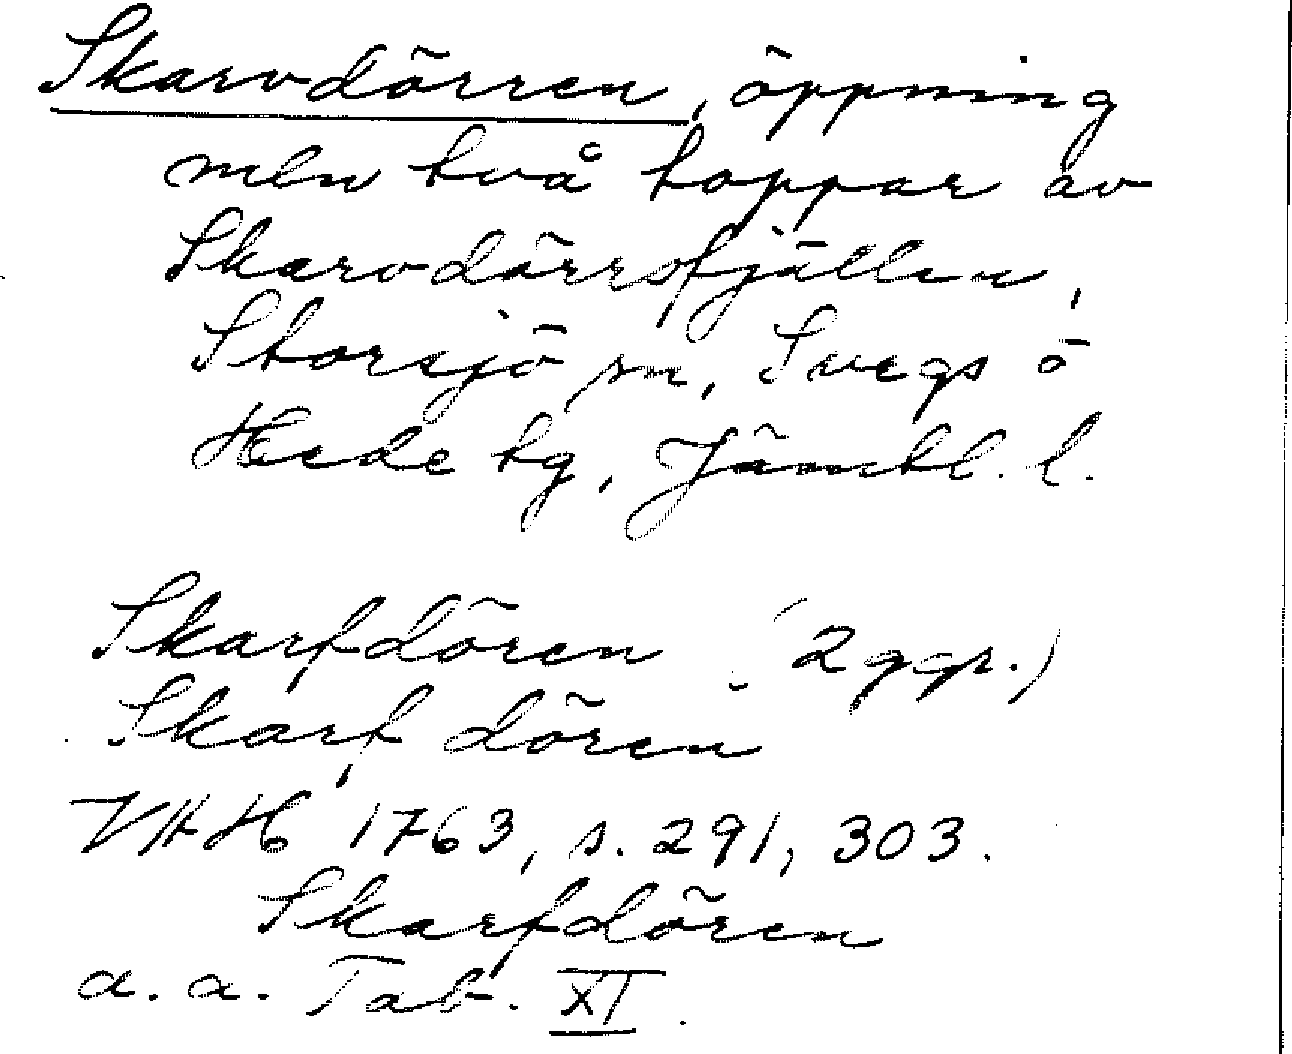 Skarvdörren, öppning
mln två toppar av
Skarvdörrsfjällen,
Storsjö sn, Svegs o
Hede tg, Jämtl. l.
Skarfdören (2 ggr.)
Skarf dören
VAH 1763, s. 291, 303.
Skarfdören
a. a. Tab. XI.